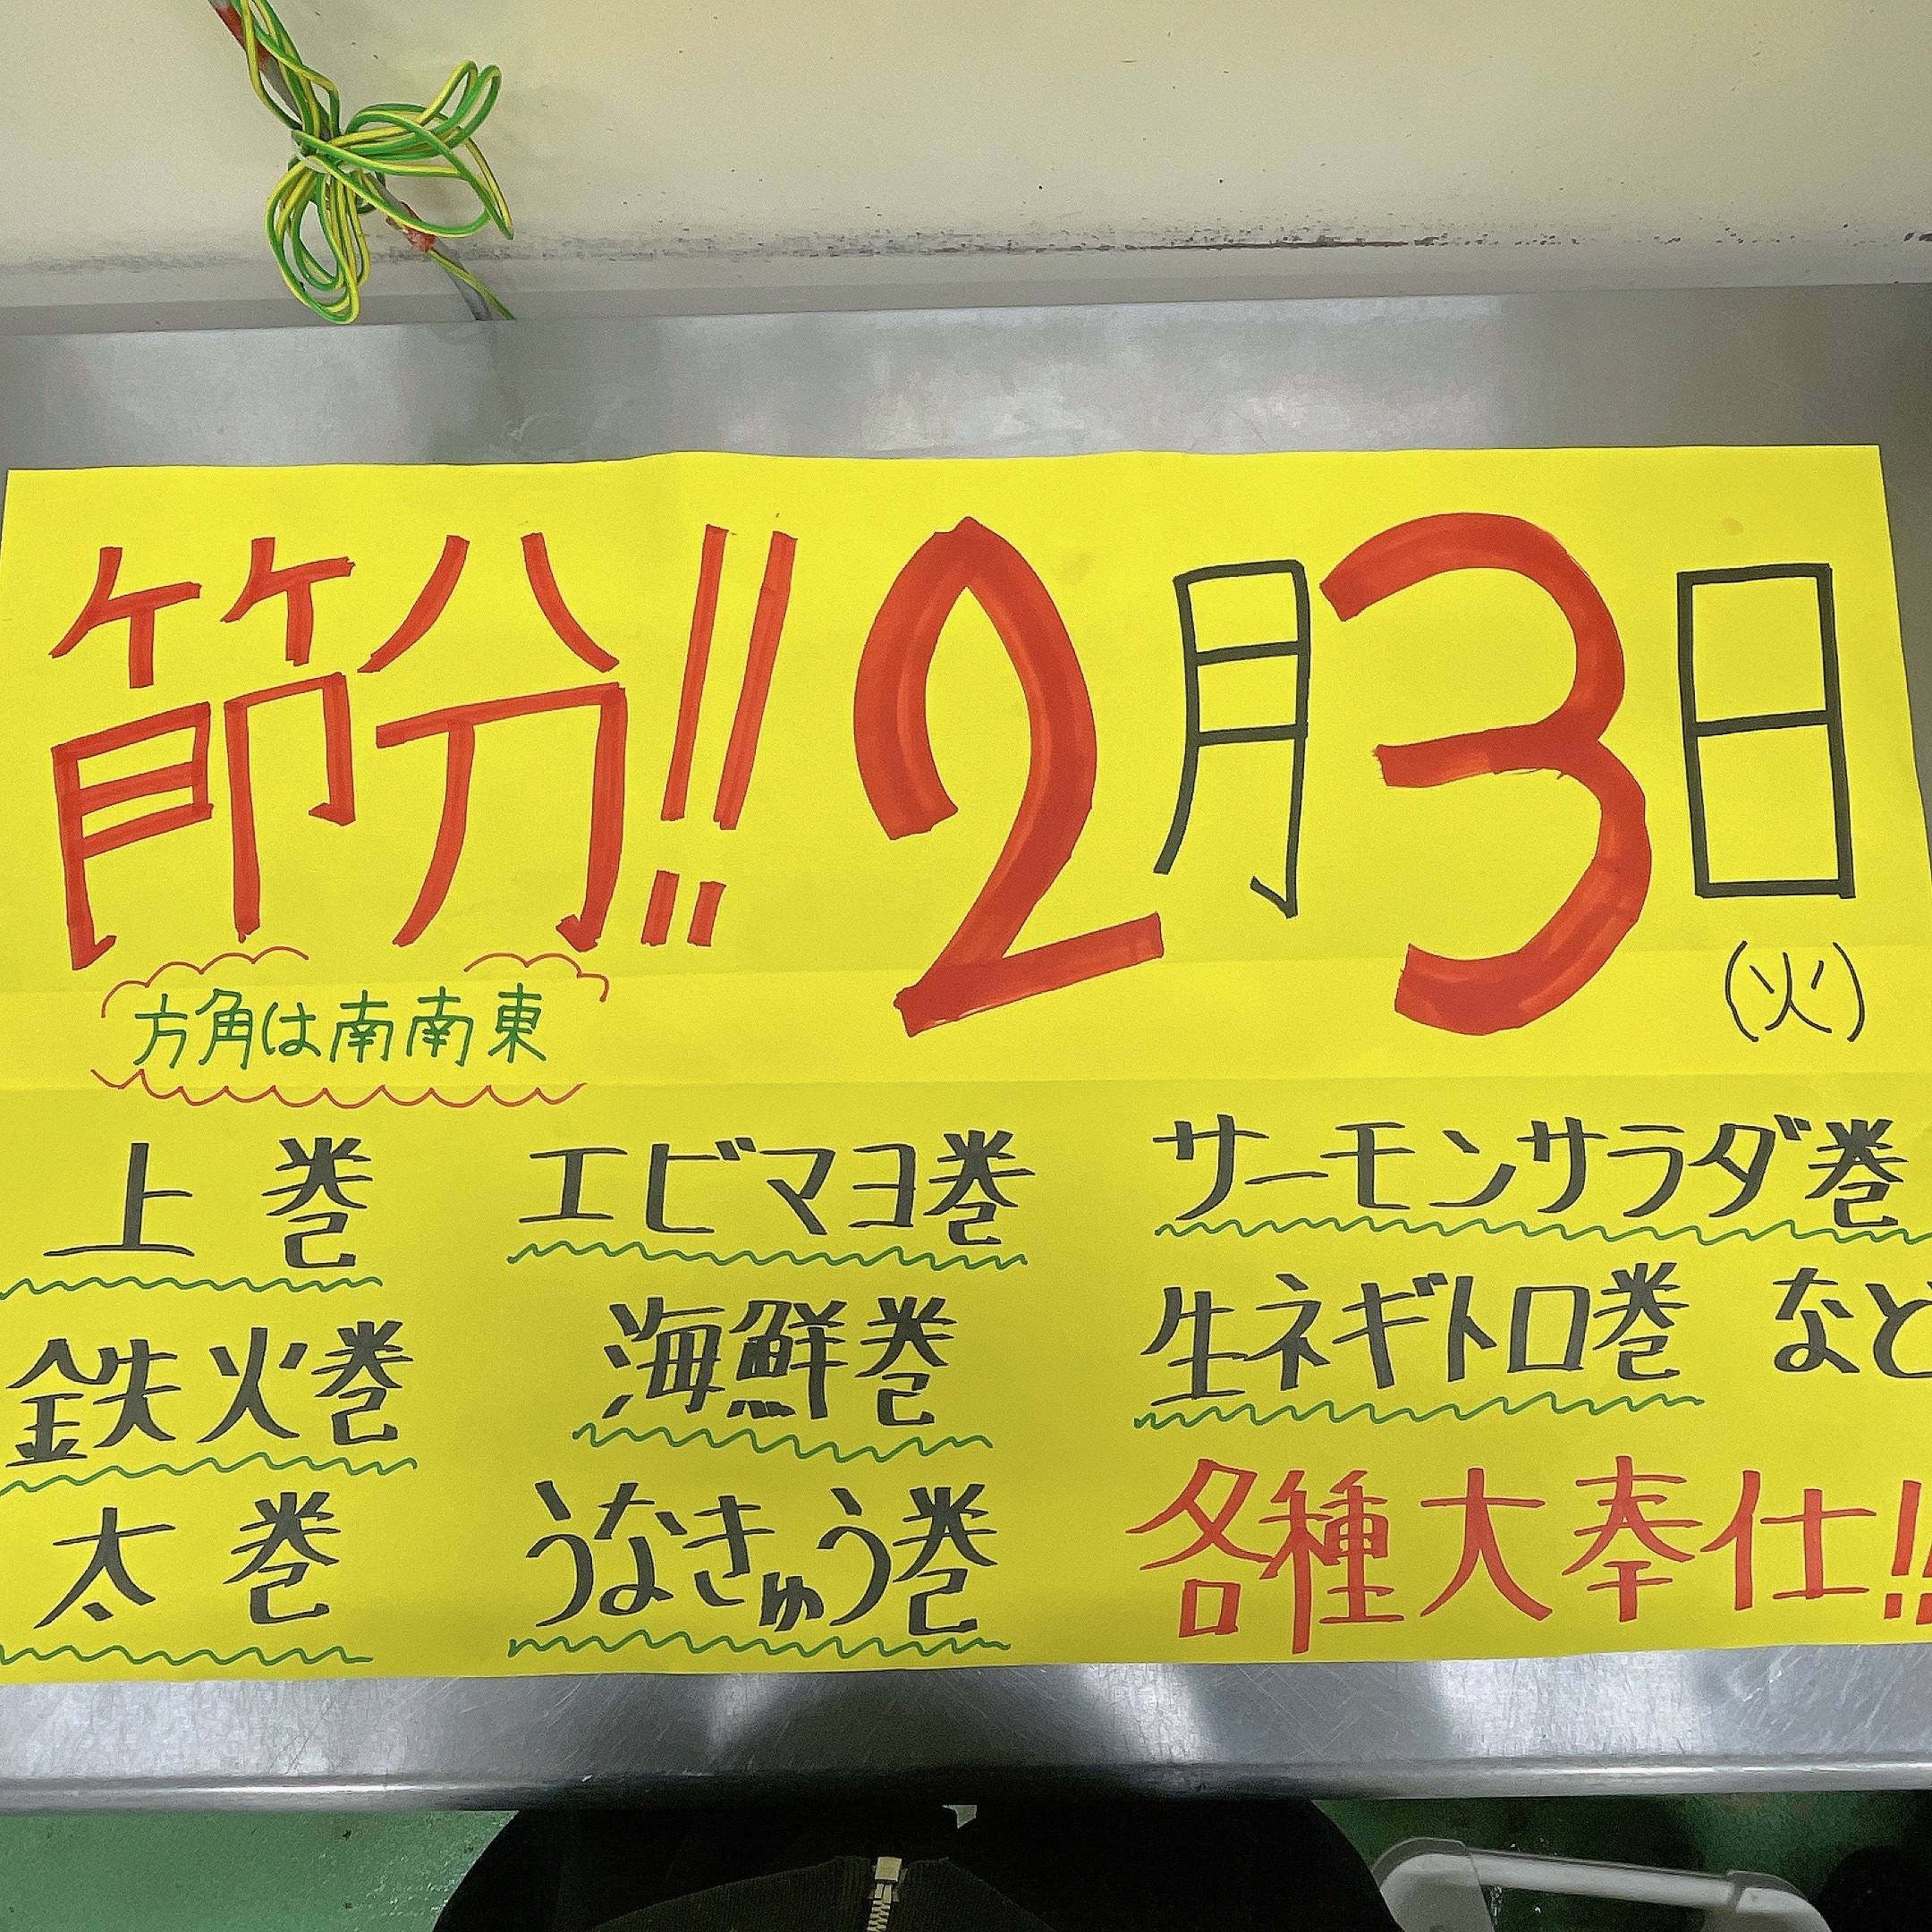 節分!! 2月3日(火)
方角は南南東
上巻 エビマヨ巻 サーモンサラダ巻
鉄火巻 海鮮巻 生ネギトロ巻 など
太巻 うなきゅう巻 各種大奉仕!!